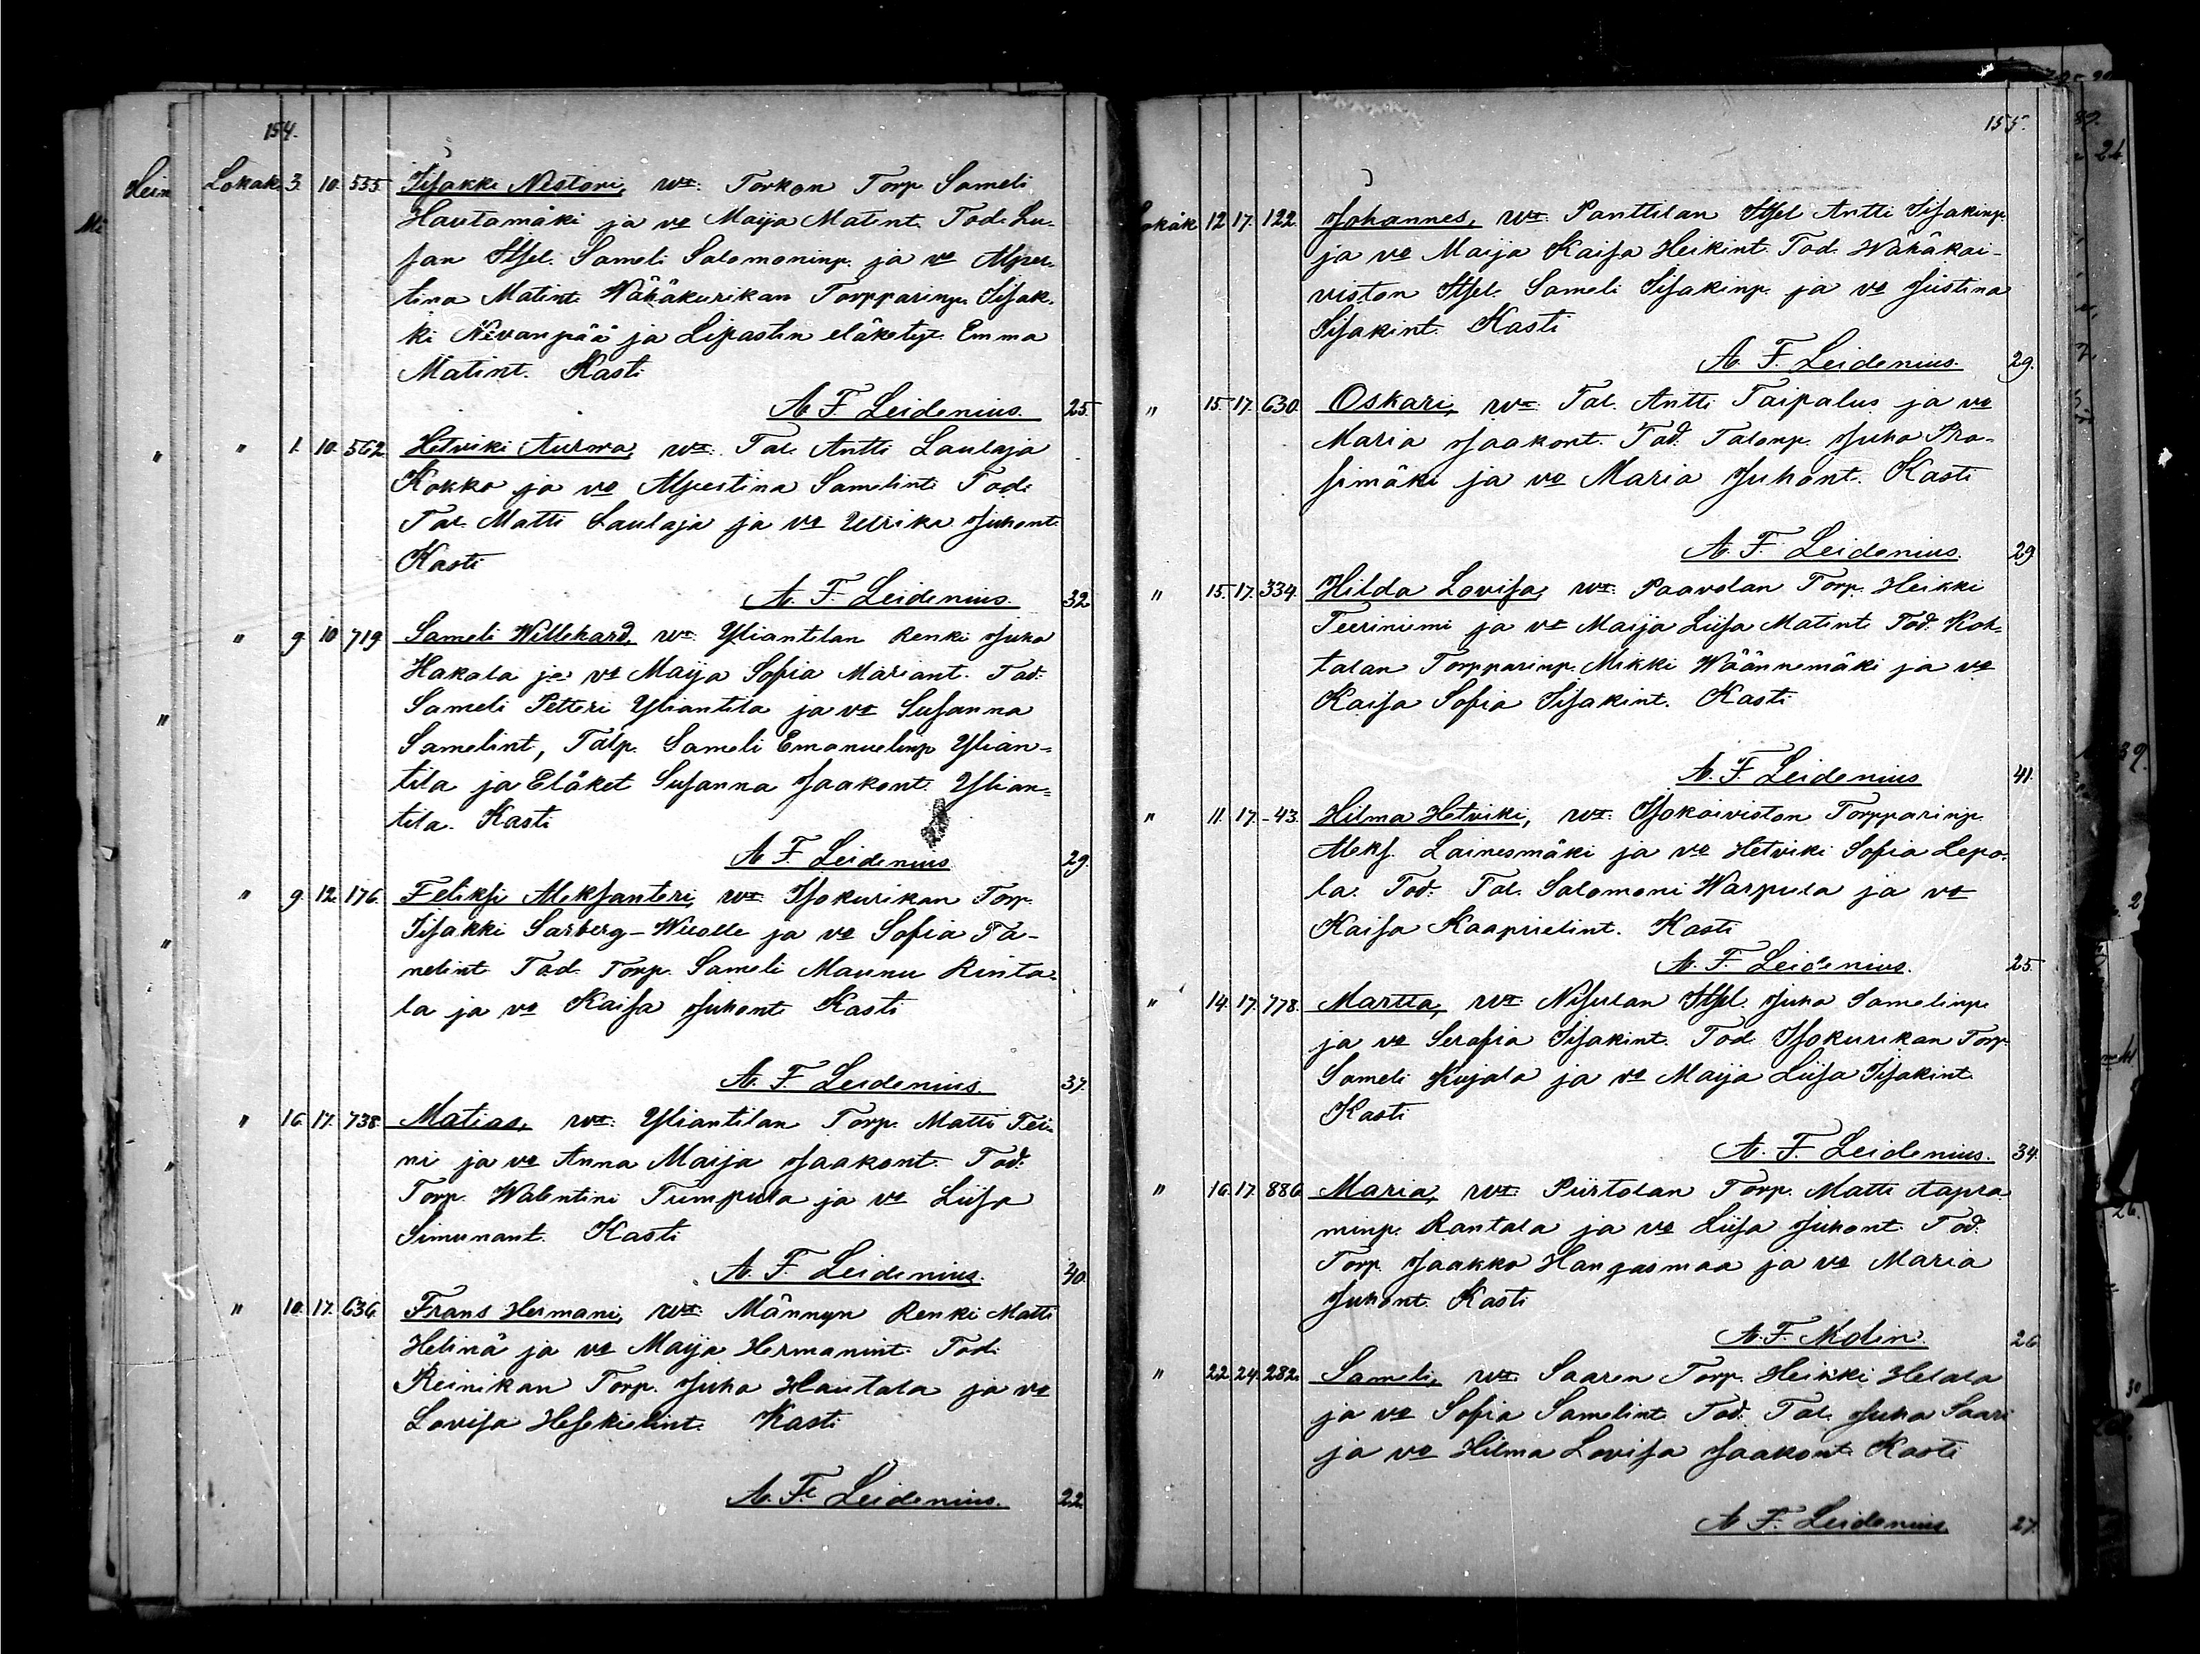 154.
Lokak. 3. 10. 555. Iisakki Nestori, vt: Torkon Torp Sameli
Hautamäki ja vo Maija Matint. Tod. Lu-
san Itsel. Sameli Salomoninp. ja vo Alper-
tina Matint. Wähäkurikan Torpparinp. Iisak-
ki Nevanpää ja Lipastin eläketyt. Emma
Matint. Kasti
A. F. Leidenius. 25.
" 1. 10. 562 Hetviki Aurora, vt: Tal. Antti Laulaja
Kokko ja vo Alpertina Samelint. Tod.
Tal. Matti Laulaja ja vo Ulrika Juhont.
Kasti
A. F. Leidenius. 32.
" 9. 10 719 Sameli Willehard, vt: Yliantilan Renki Juho
Hakala ja vo Maija Sofia Mariant. Tod.
Sameli Petteri Yliantila ja vo Susanna
Samelint, Talp. Sameli Emanuelinp Ylian-
tila ja Eläket Susanna Jaakont. Ylian-
tila. Kasti
A. F. Leidenius 29.
" 9. 12. 176. Feliksi Aleksanteri, vt: Isokurikan Torp.
Iisakki Sarberg-Wuolle ja vo Sofia Ta-
nelint. Tod. Torp. Sameli Maunu Rinta-
la ja vo Kaisa Juhont. Kasti
A. F. Leidenius. 37.
" 16. 17. 738. Matias, vt: Yliantilan Torp. Matti Tei-
ni ja vo Anna Maija Jaakont. Tod.
Torp. Walentini Tumpula ja vo Liisa
Simunant. Kasti
A. F. Leidenius. 40.
" 10. 17. 636. Frans Hermani, vt: Männyn Renki Matti
Helinä ja vo Maija Hermanint. Tod.
Reinikan Torp. Juha Hautala ja vo
Lovisa Hesekielint. Kasti
A. F. Leidenius. 22.
155.
Lokak 12 17. 122. Johannes, vt: Panttilan Itsel Antti Iisakinp.
ja vo Maija Kaisa Heikint. Tod. Wähäkoi-
viston Itsel. Sameli Iisakinp. ja vo Justina
Iisakint. Kasti
A. F. Leidenius. 29.
" 15. 17. 630. Oskari, vt: Tal. Antti Taipalus ja vo
Maria Jaakont. Tod. Talonp. Juho Pra-
simäki ja vo Maria Juhont. Kasti
A. F. Leidenius. 29
" 15. 17. 334. Hilda Lovisa, vt: Paavolan Torp. Heikki
Teeriniemi ja vo Maija Liisa Matint. Tod. Koh-
talan Torpparinp. Mikki Wäännemäki ja vo
Kaisa Sofia Iisakint. Kasti
A. F. Leidenius 41.
" 11. 17. -43. Hilma Hetviki, vt: Isokoiviston Torpparinp.
Aleks. Lainesmäki ja vo Hetviki Sofia Lepo-
la. Tod: Tal. Salomoni Warpula ja vo
Kaisa Kaaprielint. Kasti
A. F. Leidenius. 25.
" 14. 17. 778. Martta, vt: Nisulan Itsel. Juha Samelinp.
ja vo Serafia Iisakint. Tod Isokurikan Torp.
Sameli Kujala ja vo Maija Liisa Iisakint.
Kasti
A. F. Leidenius. 34.
" 16. 17. 886 Maria, vt: Piirtolan Torp. Matti Aapra-
minp. Rantala ja vo Liisa Juhont. Tod.
Torp. Jaakko Hangasmaa ja vo Maria
Juhont. Kasti
A. F. Molin. 26
" 22. 24. 282. Sameli, vt: Saaren Torp. Heikki Helala
ja vo Sofia Samelint. Tod. Tal. Juha Saari
ja vo Hilma Lovisa Jaakont. Kasti
A. F. Leidenius. 27.